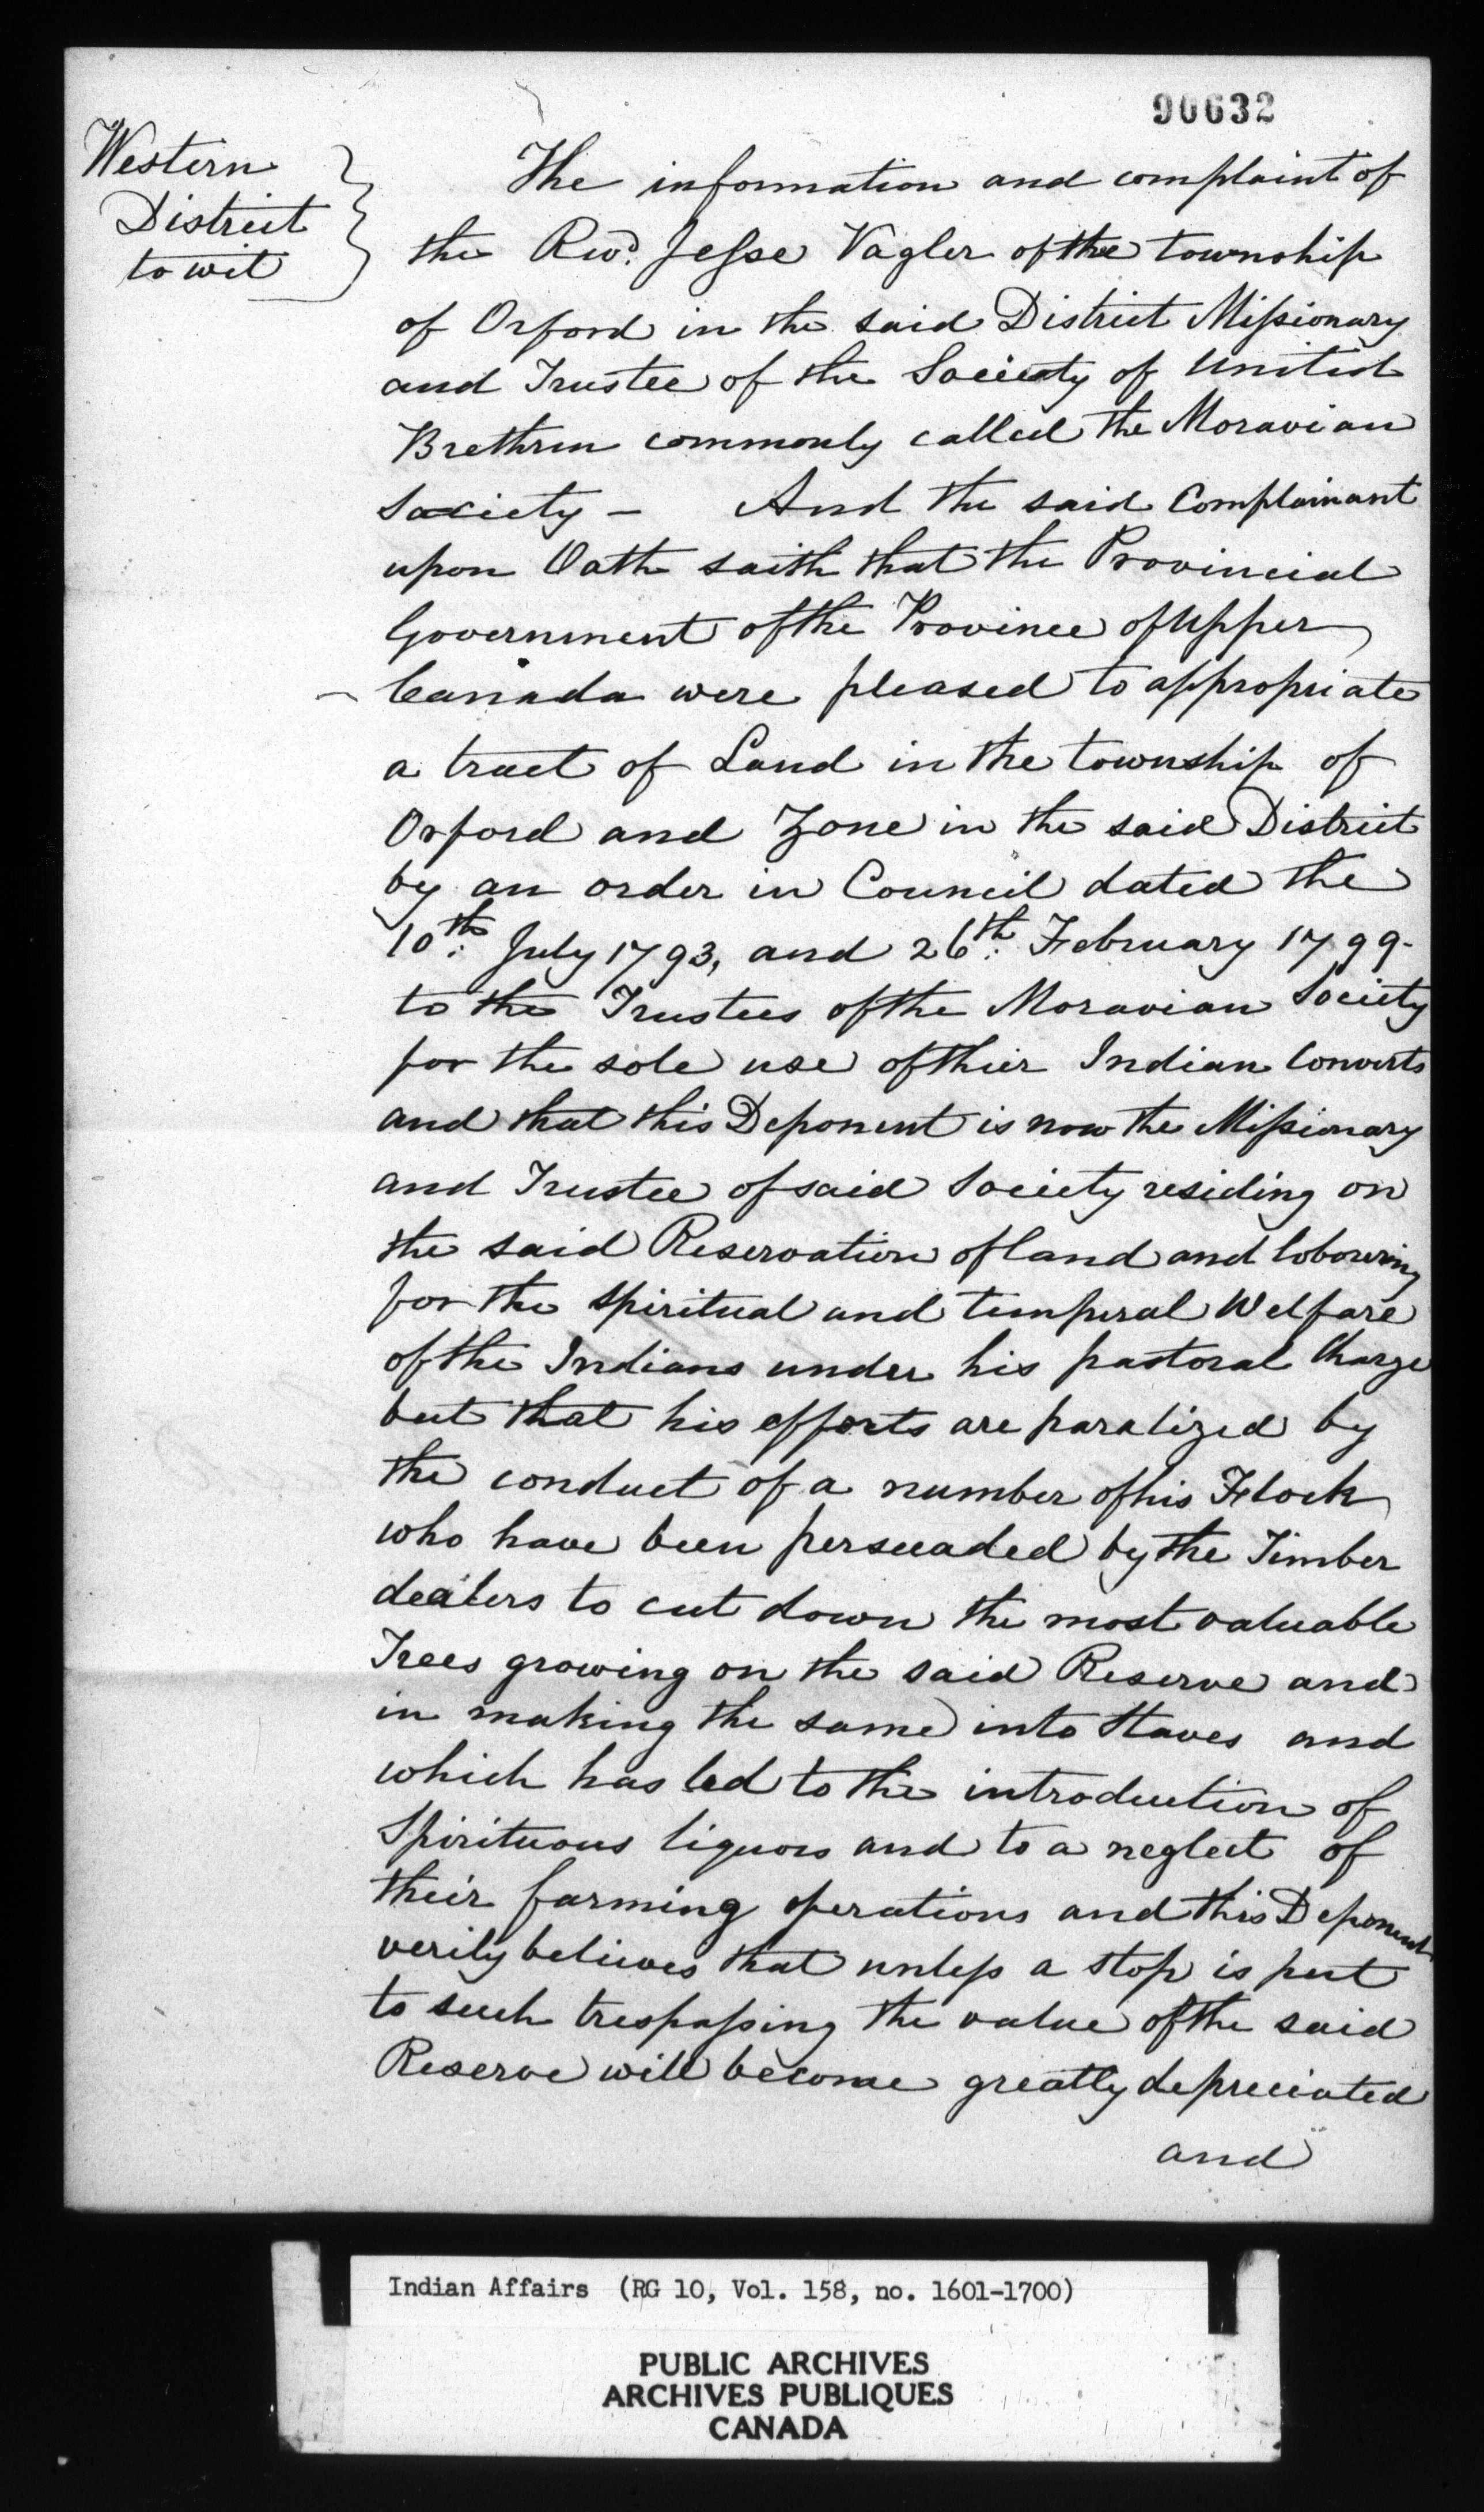 90632
Western
District
to wit
The information and complaint of
the Revd. Jesse Vagler of the township
of Orford in the said District Missionary
and Trustee of the Society of United
Brethren commonly called the Moravian
Society – And the said Complainant
upon Oath saith that the Provincial
Government of the Province of Upper
Canada were pleased to appropriate
a tract of Land in the township of
Orford and Zone in the said District
by an order in Council dated the
10th: July 1793, and 26th: February 1799-
to the Trustees of the Moravian Society
for the sole use of thier Indian Converts
and that this Deponent is now the Missionary
and Trustee of said Society residing on
the said Reservation of land and lobouring
for the spiritual and temperal Welfare
of the Indians under his pastoral Charge
but that his efforts are paralized by
the conduct of a number of his Flock
who have been persuaded by the Timber
dealers to cut down the most valuable
Trees growing on the said Reserve and
in making the same into Staves and
which has led to the introduction of
Spirituous liquors and to a neglect of
their farming operations and this Deponent
verily believes that unless a stop is put
to such trespassing the value of the said
Reserve will become greatly depreciated
and
Indian Affairs (RG 10, Vol. 158, no. 1601-1700)
PUBLIC ARCHIVES
ARCHIVES PUBLIQUES
CANADA